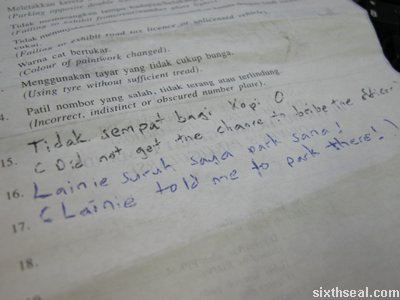 Meletakkan
(Parking
Tidak
(Failing to exhibit
Tidak
cukai.
(Failing to exhibit road tax licence
Warna cat bertukar.
(Colour of paintwork changed).
Menggunakan tayar yang tidak cukup bunga.
(Using tyre without sufficient tread).
Patil nombor yang salah, tidak terang atau terlindung
(Incorrect, indistinct or obscured number plate).
15. Tidak sempat bagi Kopi O
(Did not get the chance to bribe the officer
16. Lainie suruh saya park sana!
17. (Lainie told me to park there!)
18.
sixthseal.com